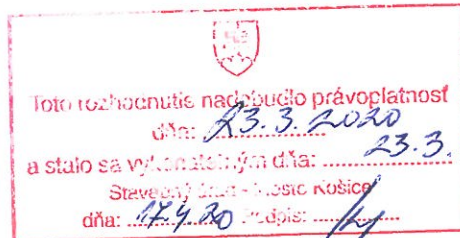 Toto rozhodnutie nadobudlo právoplatnosť
dňa: 23.3.2020
a stalo sa vykonateľným dňa: 23.3.
Stavebný úrad - Mesto Košice
dňa: 17.4.20 Podpis: